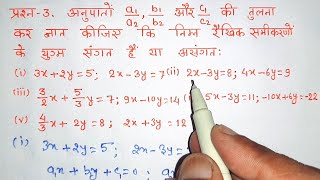 प्रश्न-3. अनुपातों a₁/a₂, b₁/b₂ और c₁/c₂ की तुलना
कर ज्ञात कीजिस कि निम्न रैखिक समीकरणों
के युग्म संगत हैं या असंगत:
(i) 3x+2y=5; 2x-3y=7 (ii) 2x-3y=8; 4x-6y=9
(iii) 3/2x+5/3y=7; 9x-10y=14 5x-3y=11; -10x+6y=-22
(v) 4/3x+2y=8; 2x+3y=12
(i) 3x+2y=5; 2x-3y=